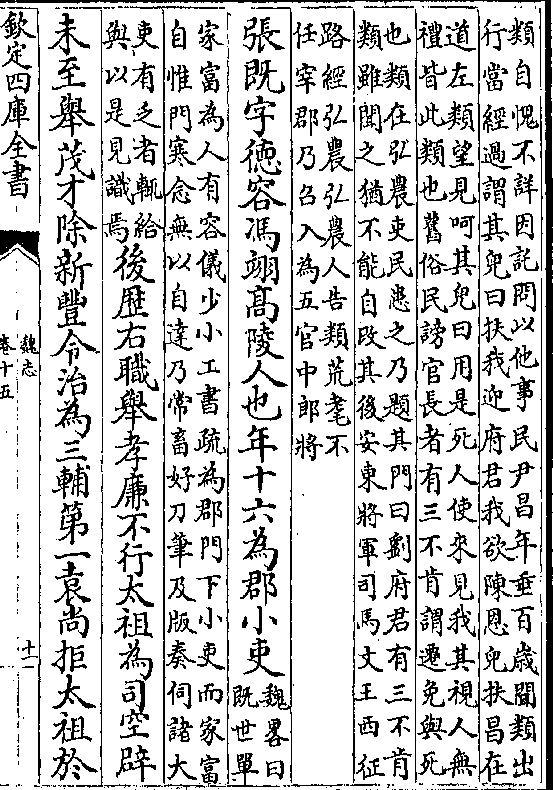 類自愧不詳因託問以他事民尹昌年垂百歲聞類出
行當經過謂其兒曰扶我迎府君我欲陳恩兒扶昌在
道左類望見呵其兒曰用是死人使來見我其視人無
禮皆此類也舊俗民謗官長者有三不肯謂遷免與死
也類在弘農吏民患之乃題其門曰劉府君有三不肯
類雖聞之猶不能自改其後安東將軍司馬文王西征
路經弘農弘農人告類荒耄不
任宰郡乃召入為五官中郎將
張既字徳容馮翊髙陵人也年十六為郡小吏
魏畧曰
既世單
家富為人有容儀少小工書疏為郡門下小吏而家富
自惟門寒念無以自達乃常畜好刀筆及版奏伺諸大
吏有乏者輒給
與以是見識焉
後歴右職舉孝廉不行太祖為司空辟
未至舉茂才除新豐令治為三輔第一袁尚拒太祖於
欽定四庫全書
魏志
卷十五
十一